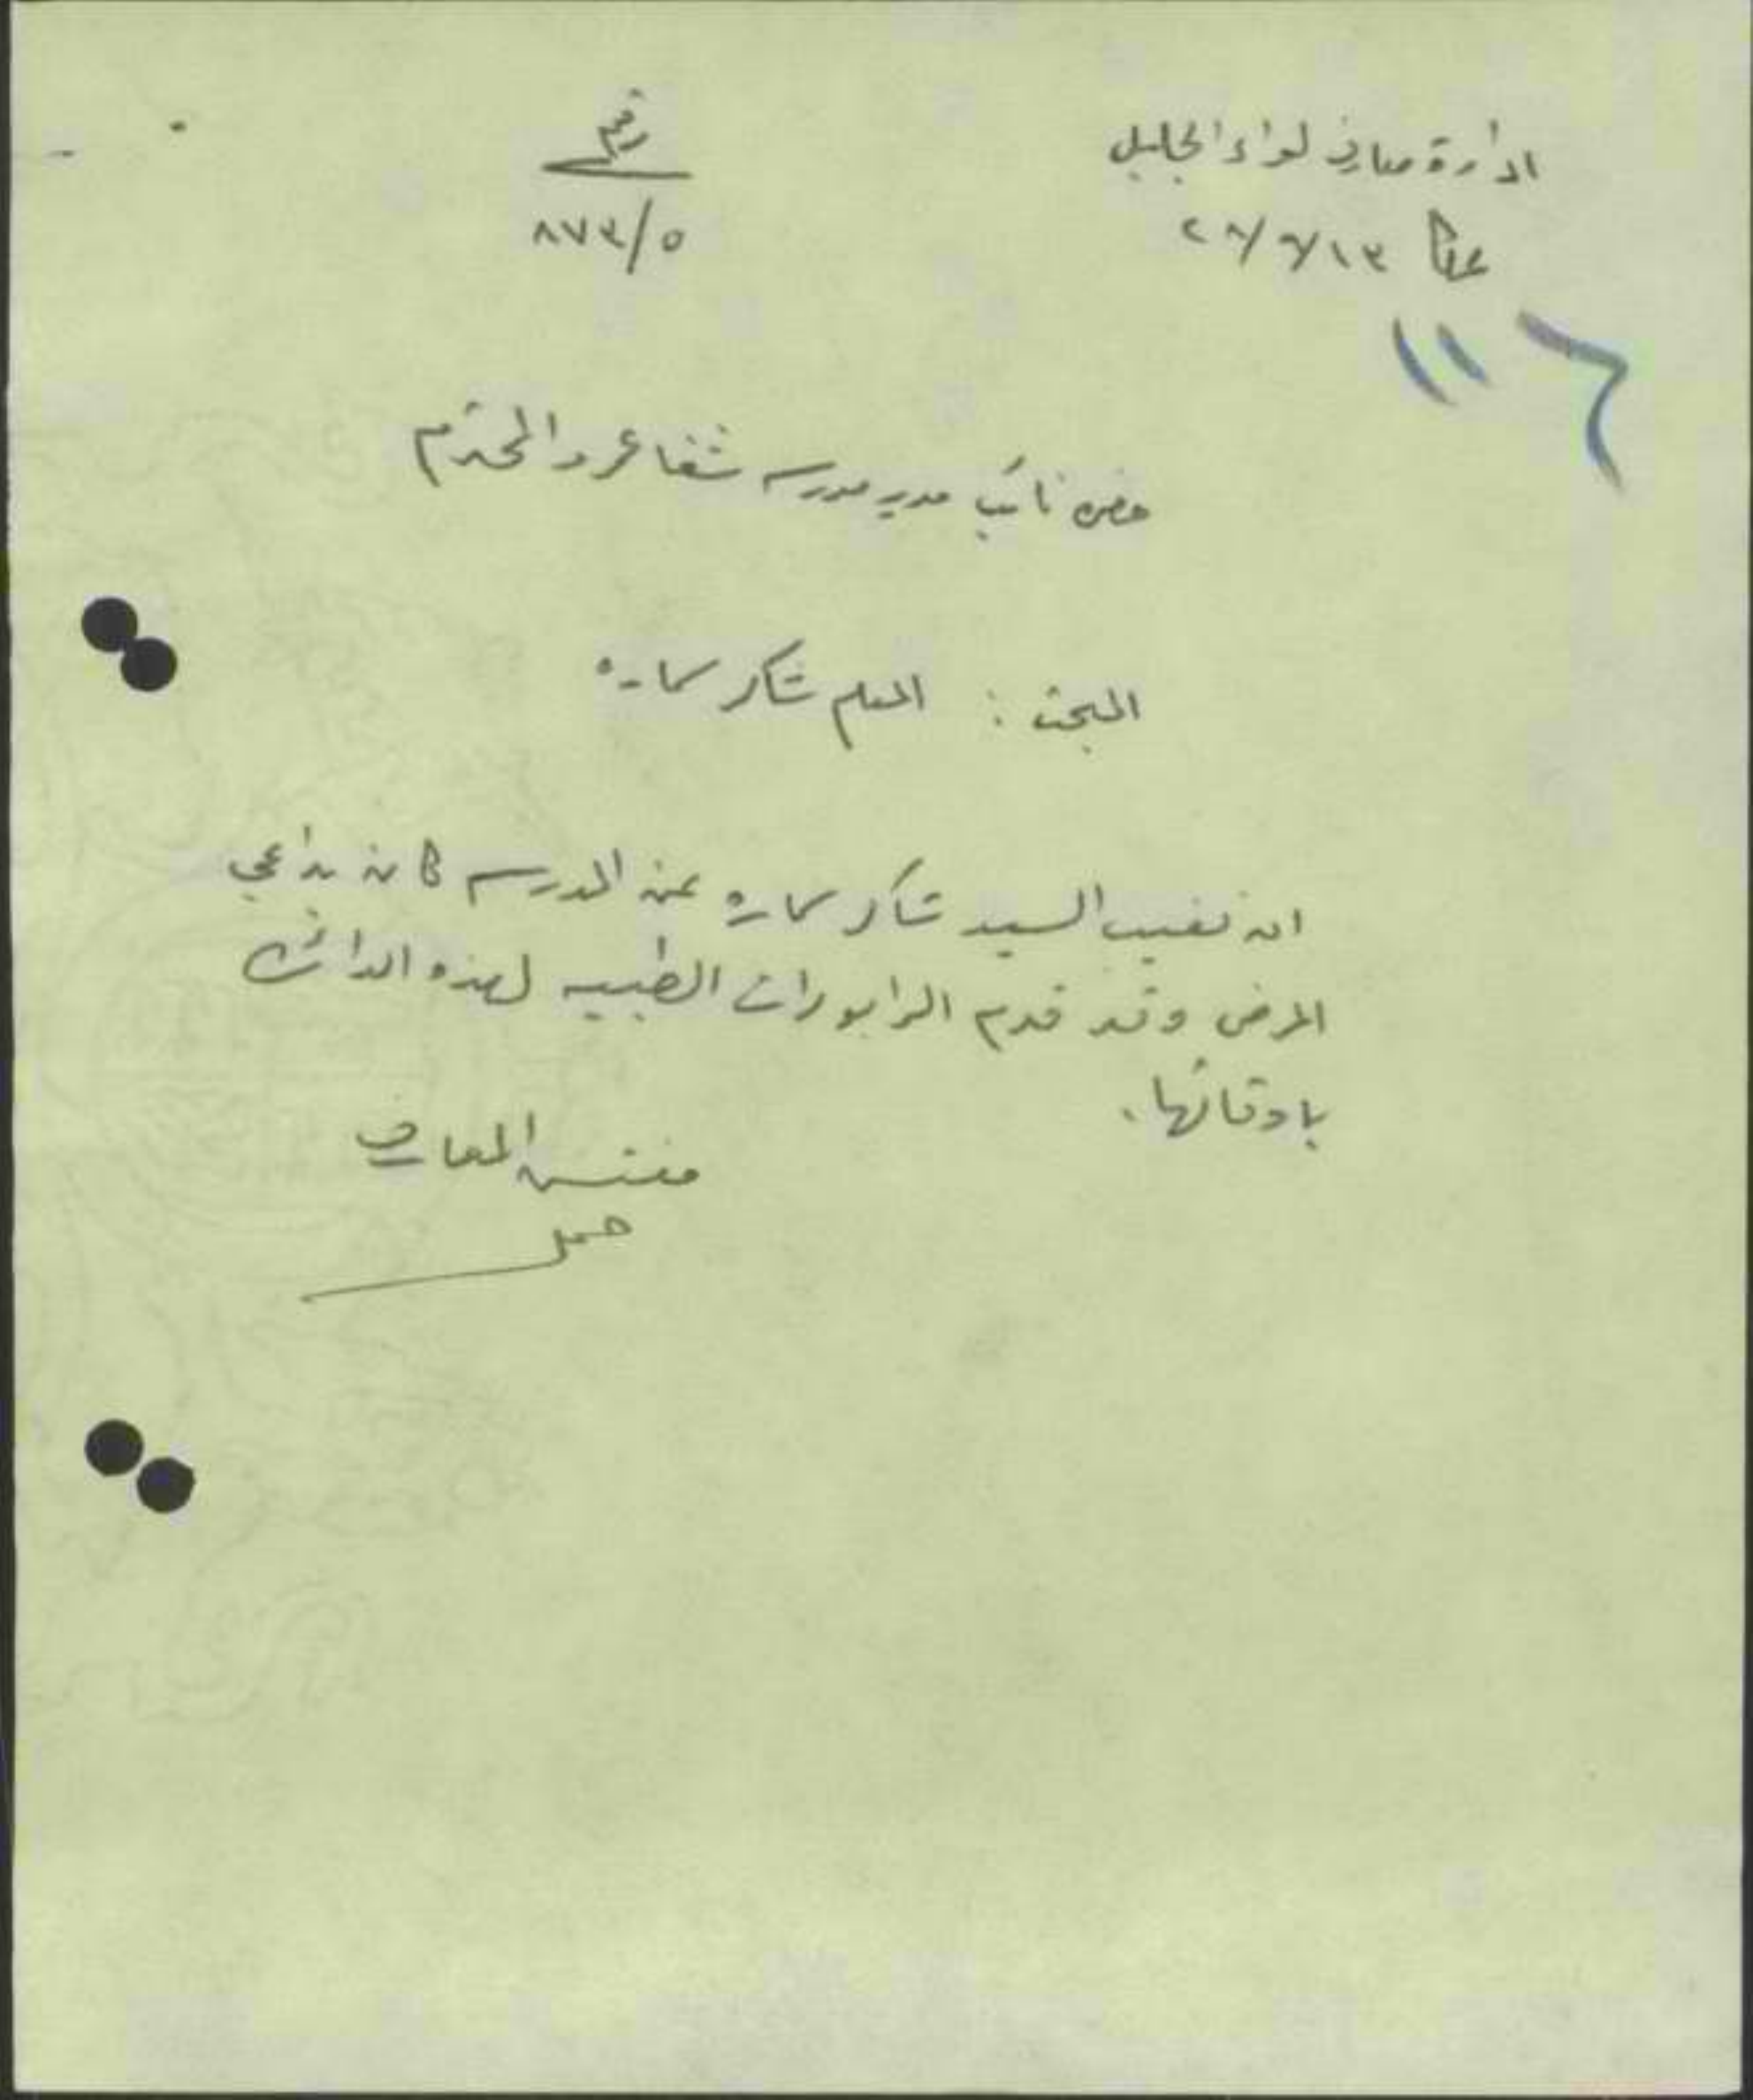 ادارة معارف لواء الجليل
رقم
عكا ١٣/٦/٢٨
٨٧٣/٥
١١٦
حضرة نائب مدير مدرسة شفا عمرو المحترم
المبحث : المعلم شاكر سماره
ان تغيب السيد شاكر سماره عن المدرسه كان بداعي
المرض وقد قدم الرابورات الطبيه لهذه الدائرة
باوقاتها .
مفتش المعارف